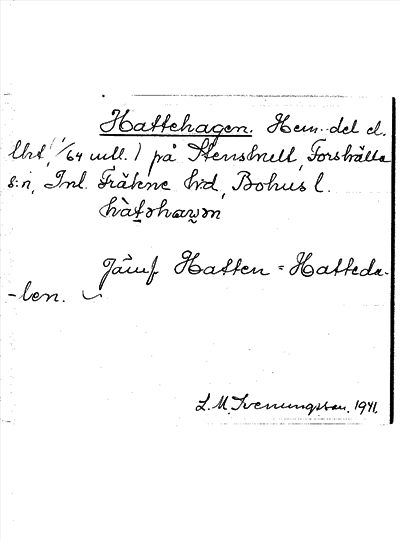 Hattehagen. Hem.-del el.
lht, 1/64 mtl. ) på Stenshult, Forshälla
s:n, Inl. Fräkne hd, Bohus l.
Jämf Hatten = Hatteda-
-len.
L. M. Svenungsson. 1941.